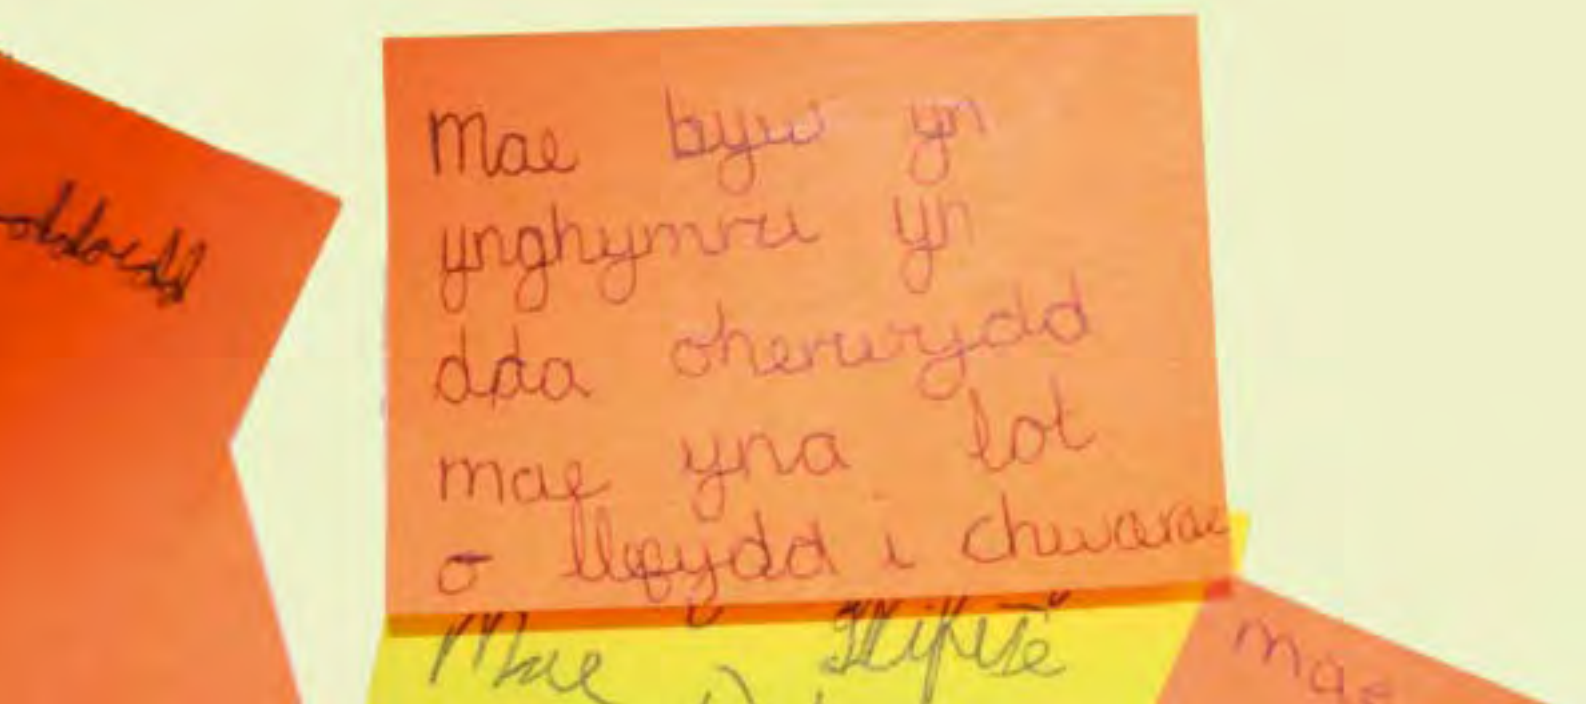 Mae byw yn
ynghymru yn
dda oherwydd
mae yna lot
o llefydd i chwarae
Mae
Mae